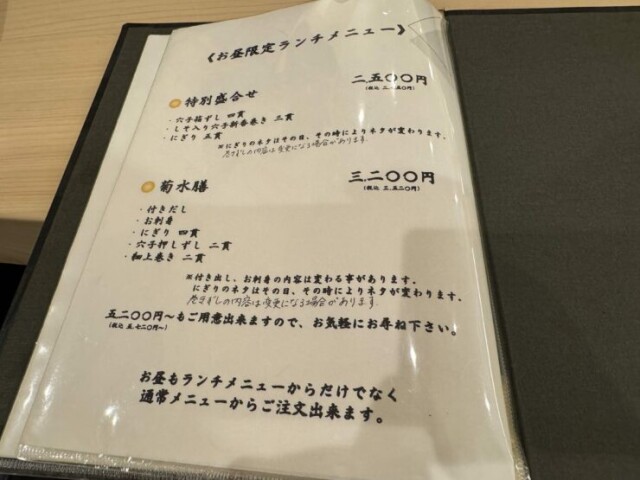 《お昼限定ランチメニュー》
二.五〇〇円
(税込 二.七五〇円)
特別盛合せ
・穴子箱ずし 四貫
・しそ入り穴子新香巻き 三貫
・にぎり 五貫
※にぎりのネタはその日、その時によりネタが変わります。
巻きずしの内容は変更になる場合があります。
三.二〇〇円
(税込 三.五二〇円)
菊水膳
・付きだし
・お刺身
・にぎり 四貫
・穴子押しずし 二貫
・細上巻き 二貫
※付き出し、お刺身の内容は変わる事があります。
にぎりのネタはその日、その時によりネタが変わります。
巻きずしの内容は変更になる場合があります。
五二〇〇円～もご用意出来ますので、お気軽にお尋ね下さい。
(税込 五.七二〇円～)
お昼もランチメニューからだけでなく
通常メニューからご注文出来ます。